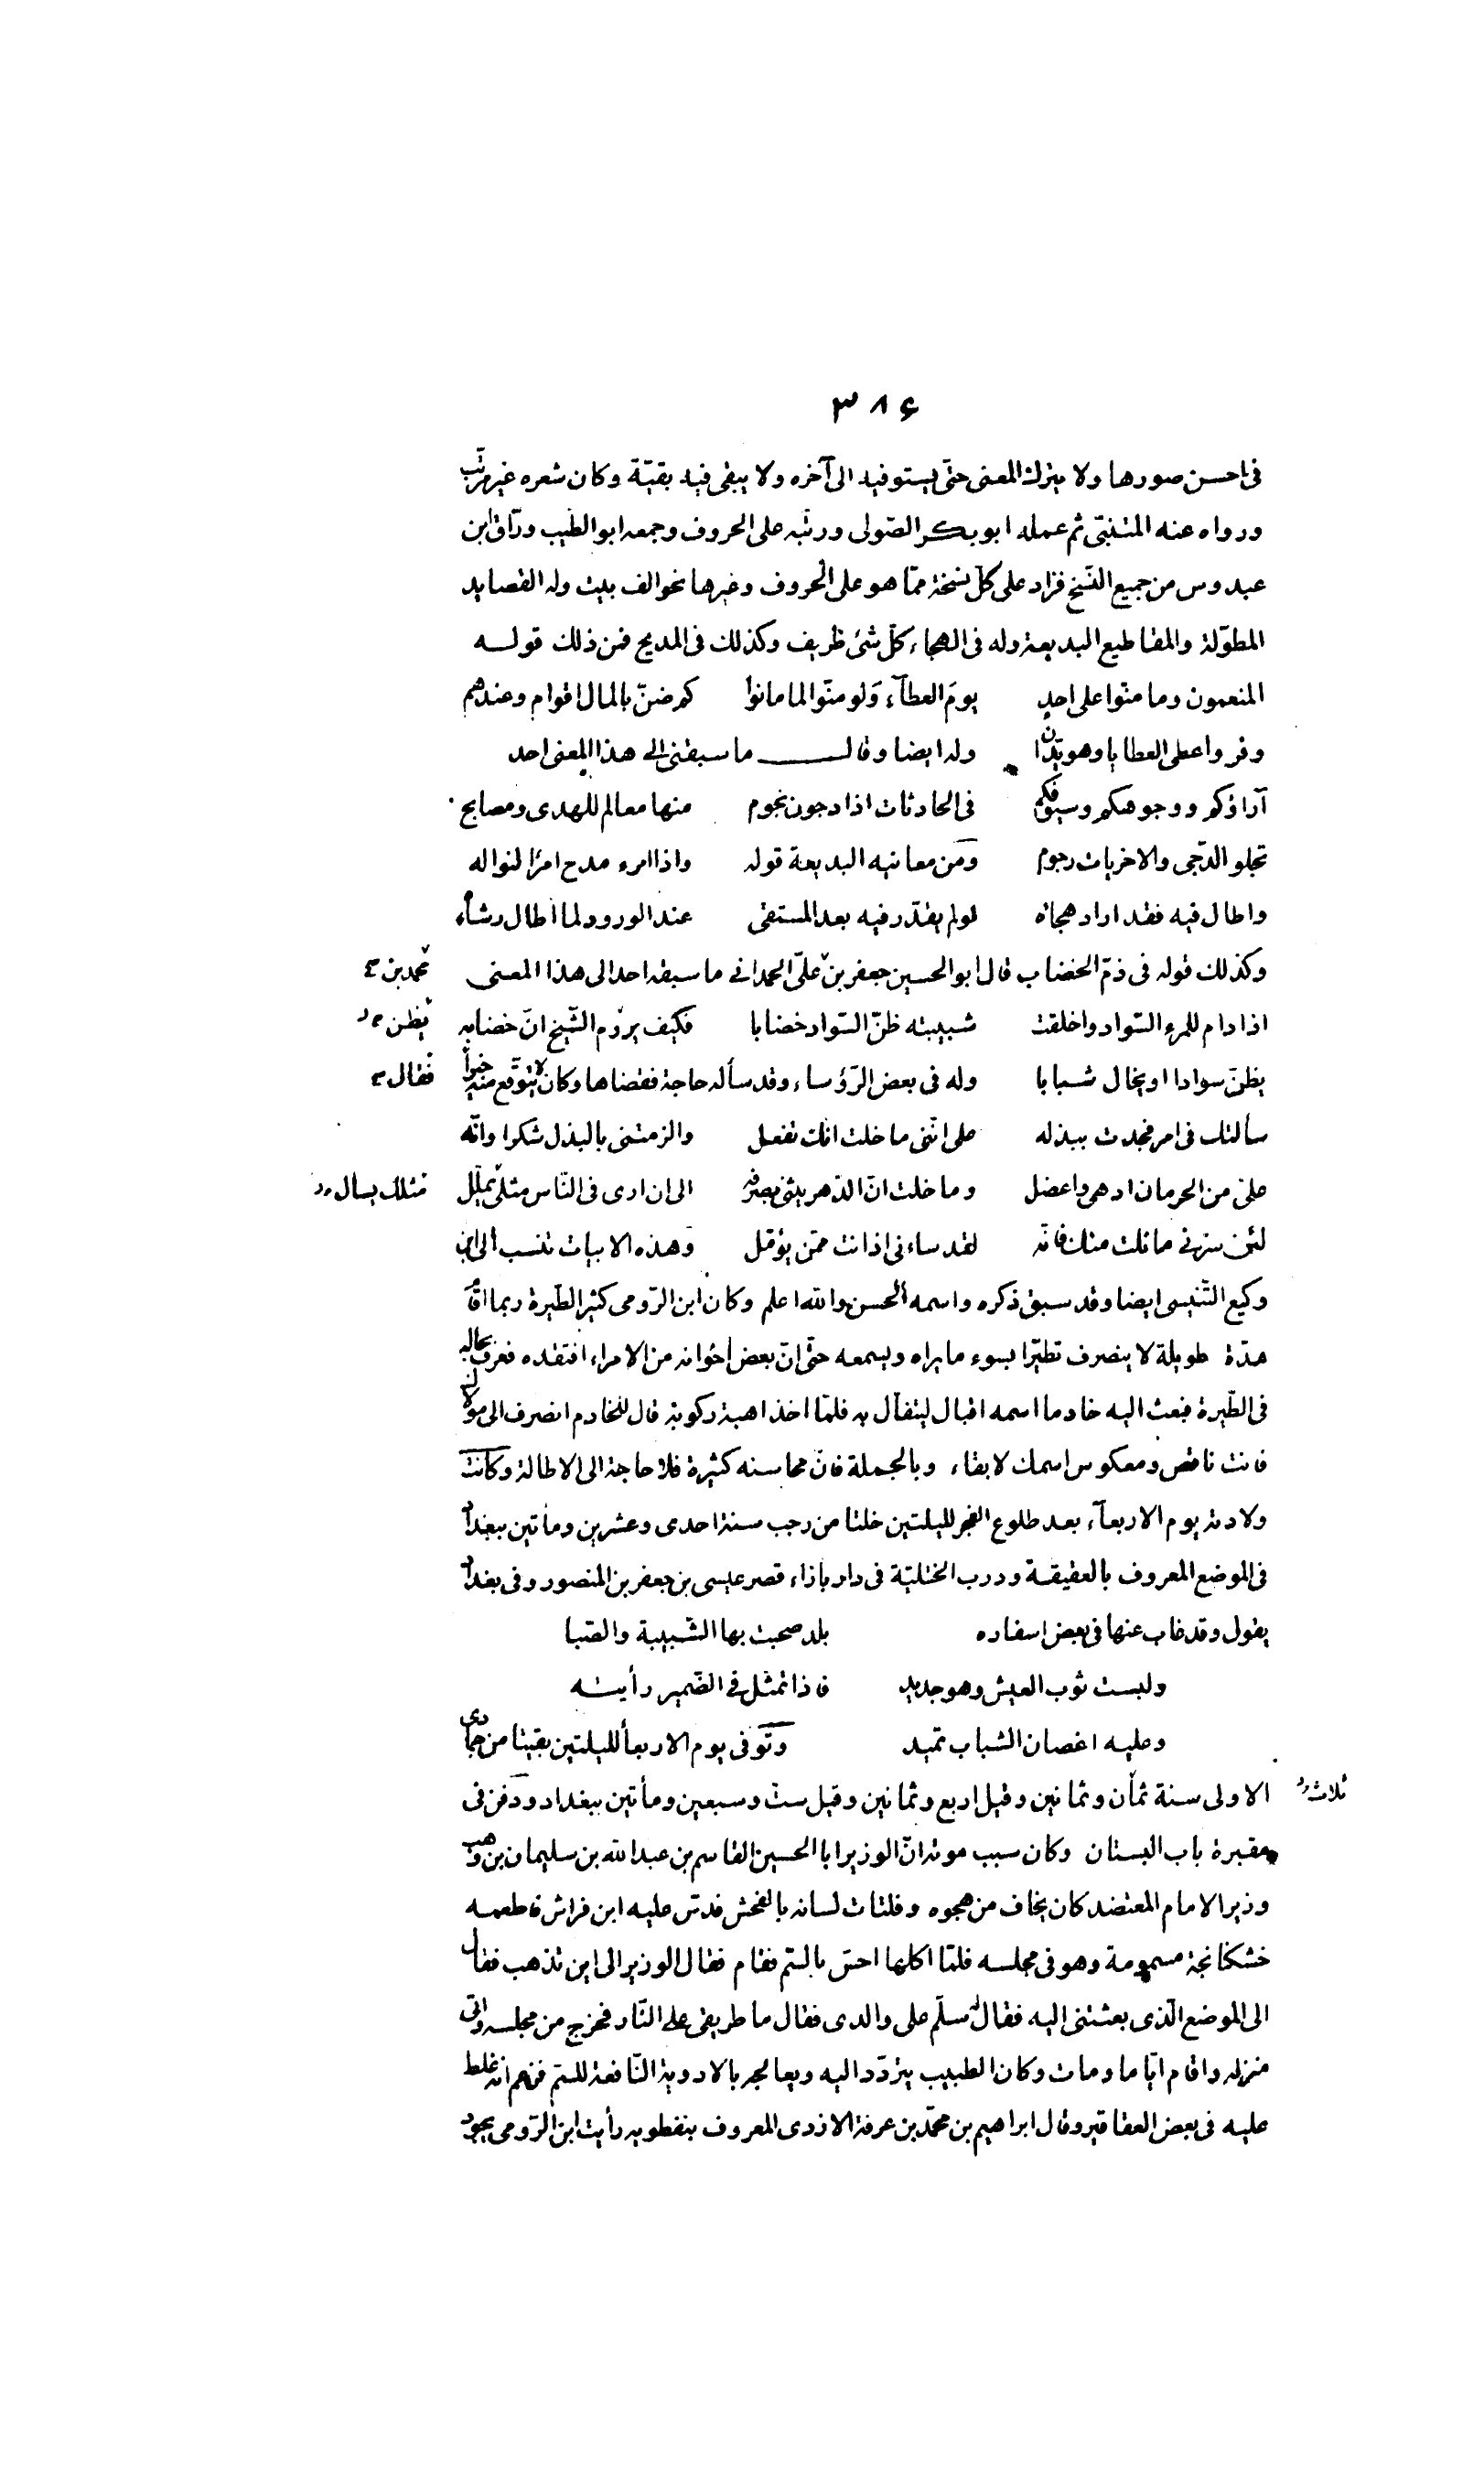 ٣٨۶
فى احسن صورها ولا يترك المعنى حتّى يستوفيه الى آخره ولا يبقى فيه بقيّة وكان شعره غير مرتّب
ورواه عنه المتنبّى ثم عمله ابو بكر الصّولى ورتّبه على الحروف وجمعه ابو الطّيب ورّاق ابن
عبدوس من جميع النّسخ فزاد على كلّ نسخة ممّا هو على الحروف وغيرها نحو الف بيت وله القصايد
المطوّلة والمقاطيع البديعة وله فى الهجاء كلّ شئ ظريف وكذلك فى المديح فمن ذلك قوله
المنعمون وما منّوا على احدٍ يومَ العطآء وَلو منّوا لما مانوا كم ضنّ بالمال اقوام وعندهم
وفر واعطى العطايا وهو يدّان وله ايضا وقال ما سبقنى الى هذا المعنى احد
آراؤكم ووجوهكم وسيوفكم فى الحادثات اذا دجون نجوم منها معالم للهدى ومصابح
تجلو الدّجى والاخريات رجوم ومن معانيه البديعة قوله واذا امرء مدح امرًا لنواله
واطال فيه فقد اراد هجاه لو لم يقدّر فيه بعد المستقى عند الورود لما اطال رشاه
وكذلك قوله فى ذمّ الخضاب قال ابو الحسين جعفر بن علىّ الحمدانى ما سبقه احد الى هذا المعنى محمد بن
اذا دام للمرء السّواد واخلقت شبيبته ظنّ السّواد خضابا فكيف يروم الشّيخ انّ خضابه يظن
يظنّ سوادا او يخال شبابا وله فى بعض الرّؤساء وقد سأله حاجة فقضاها وكان لا يتوقّع منه خيرا فقال
سألتك فى امر فجدت ببذله على انّنى ما خلت انّك تفعل والزمتنى بالبذل شكرا وانّه
علىّ من الحرمان ادهى واعضل وما خلت انّ الدّهر يثنى بصرفه الى ان ارى فى النّاس مثلى مثلك يسال
لئن سرّنى ما نلت منك فانّه لقد ساءنى اذ انت ممّن يؤمّل وهذه الابيات تنسب الى ابن
وكيع التّنيسى ايضا وقد سبق ذكره واسمه الحسن والله اعلم وكان ابن الرّومى كثير الطّيرة ربما اقام
مدّة طويلة لا ينصرف تطيّرا بسوء ما يراه ويسمعه حتّى انّ بعض اخوانه من الامراء افتقده فعرف بحاله
فى الطّيرة فبعث اليه خادما اسمه اقبال ليتفأل به فلمّا اخذ اهبة ركوبه قال للخادم انصرف الى مولاك
فانت ناقص ومعكوس اسمك لا بقاء وبالجملة فانّ محاسنه كثيرة فلا حاجة الى الاطالة وكانت
ولادته يوم الاربعآء بعد طلوع الفجر لليلتين خلتا من رجب سنة احدى وعشرين ومأتين ببغداد
فى الموضع المعروف بالعقيقة ودرب الختليّة فى دار بازاء قصر عيسى بن جعفر بن المنصور وفى بغداد
يقول وقد غاب عنها فى بعض اسفاره بلد صحبت بها الشّبيبة والصّبا
ولبست ثوب العيش وهو جديد فاذا تمثّل فى الضّمير رأيته
وعليه اغصان الشّباب تميد وتوّفى يوم الاربعأ لليلتين بقيتا من جمادى
الاولى سنة ثمان وثمانين وقيل اربع وثمانين وقيل ستّ وسبعين ومأتين ببغداد ودفن فى ثلاث
مقبرة باب البستان وكان سبب موته انّ الوزير ابا الحسين القاسم بن عبد الله بن سليمان بن وهب
وزير الامام المعتضد كان يخاف من هجوه وفلتات لسانه بالفحش فدسّ عليه ابن فراش فاطعمه
خشكنانجة مسمومة وهو فى مجلسه فلمّا اكلها احسّ بالسّم فقام فقال الوزير الى اين تذهب فقال
الى الموضع الّذى بعثتنى اليه فقال له سلّم على والدى فقال ما طريقى على النّار فخرج من مجلسه واتى
منزله واقام ايّاما ومات وكان الطبيب يتردّد اليه ويعالجه بالادوية النّافعة للسّم فزعم انه غلط
عليه فى بعض العقاقير وقال ابراهيم بن محمّد بن عرفة الازدى المعروف بنفطويه رأيت ابن الرّومى يجود